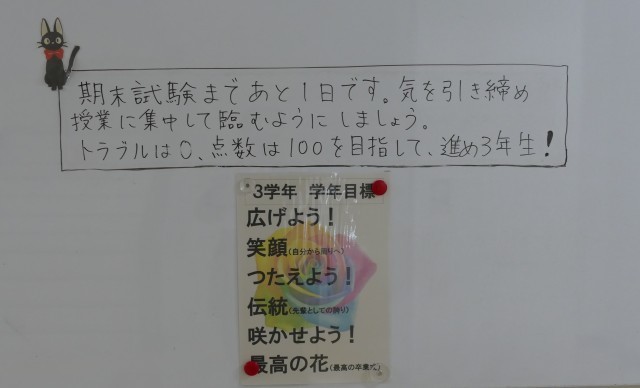 期末試験まであと1日です。気を引き締め
授業に集中して臨むようにしましょう。
トラブルは0、点数は100を目指して、進め3年生!
3学年 学年目標
広げよう!
笑顔(自分から周りへ)
つたえよう!
伝統(先輩としての誇り)
咲かせよう!
最高の花(最高の卒業式)